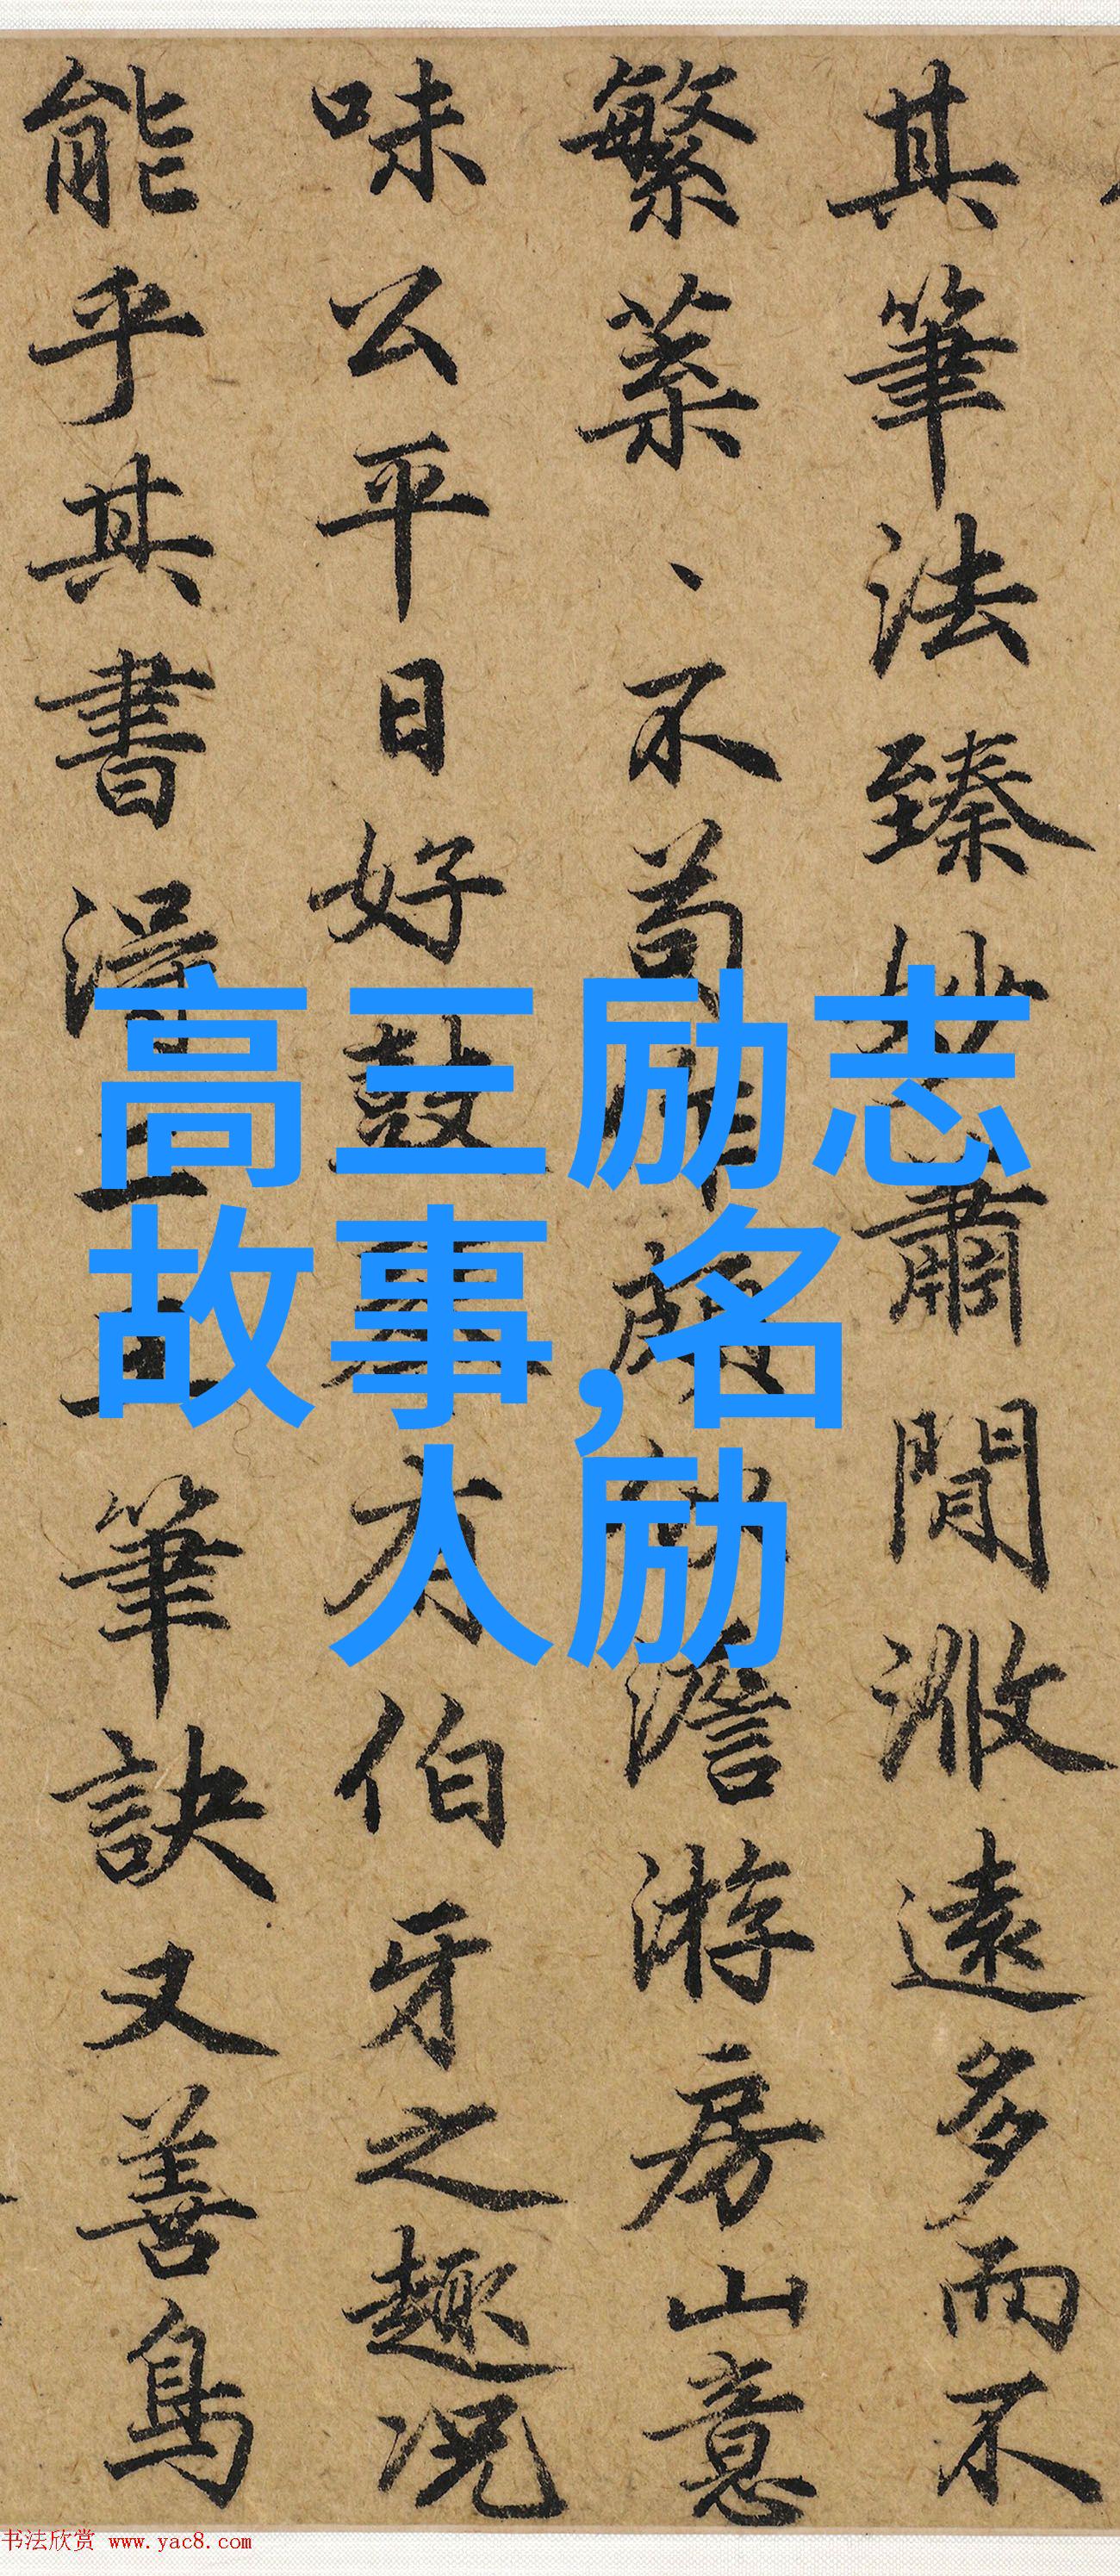 其筆法臻妙蕭閒㴑遠多而不
繁菜、不苟

澹游房山意
味公平日好鼓琴有伯牙之趣况
能乎其書得二王筆訣又善鳥
高三励志
故事,名
人励
书法欣赏 www.yac8.com